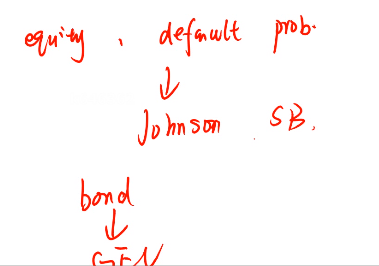 equity, default prob.
↓
Johnson SB.
bond
↓